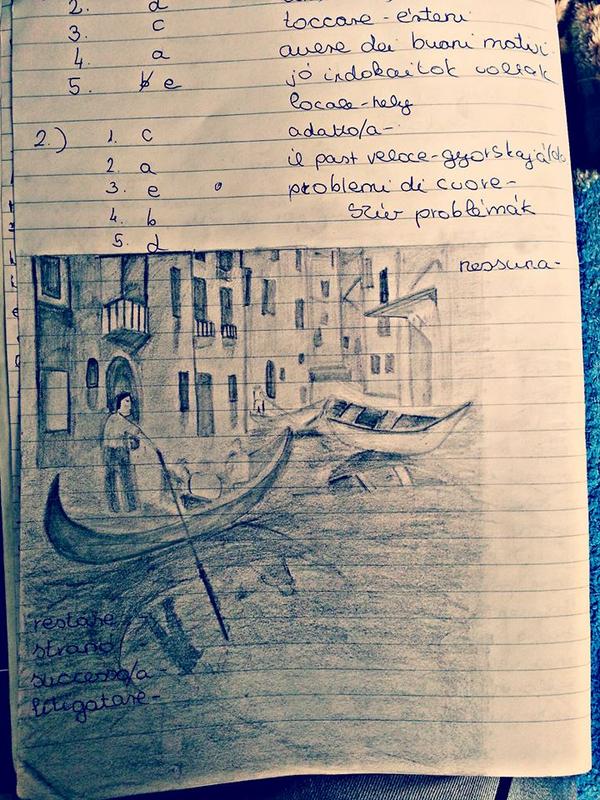 2. d
3. c
4. a
5. e
2.) 1. c
2. a
3. e
4. b
5. d
toccare - érteni
avere dei buoni motivi
jó indokaitok
locale - hely
adatto/a -
il past veloce - gyorskajálda
problemi di cuore -
szív problémák
nessuna -
restare
strano
successo/a -
litigatare -